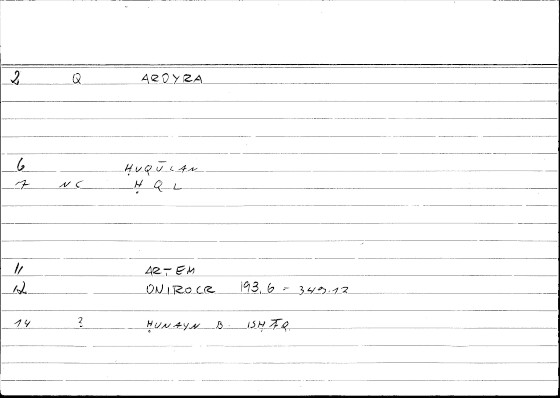 2 Q AROYRA
6 ḤUQŪLAN
7 NC Ḥ Q L
11 ARTEM
12 ONIROCR 193,6 = 349.12
14 ? ḤUNAYN B. ISḤĀQ